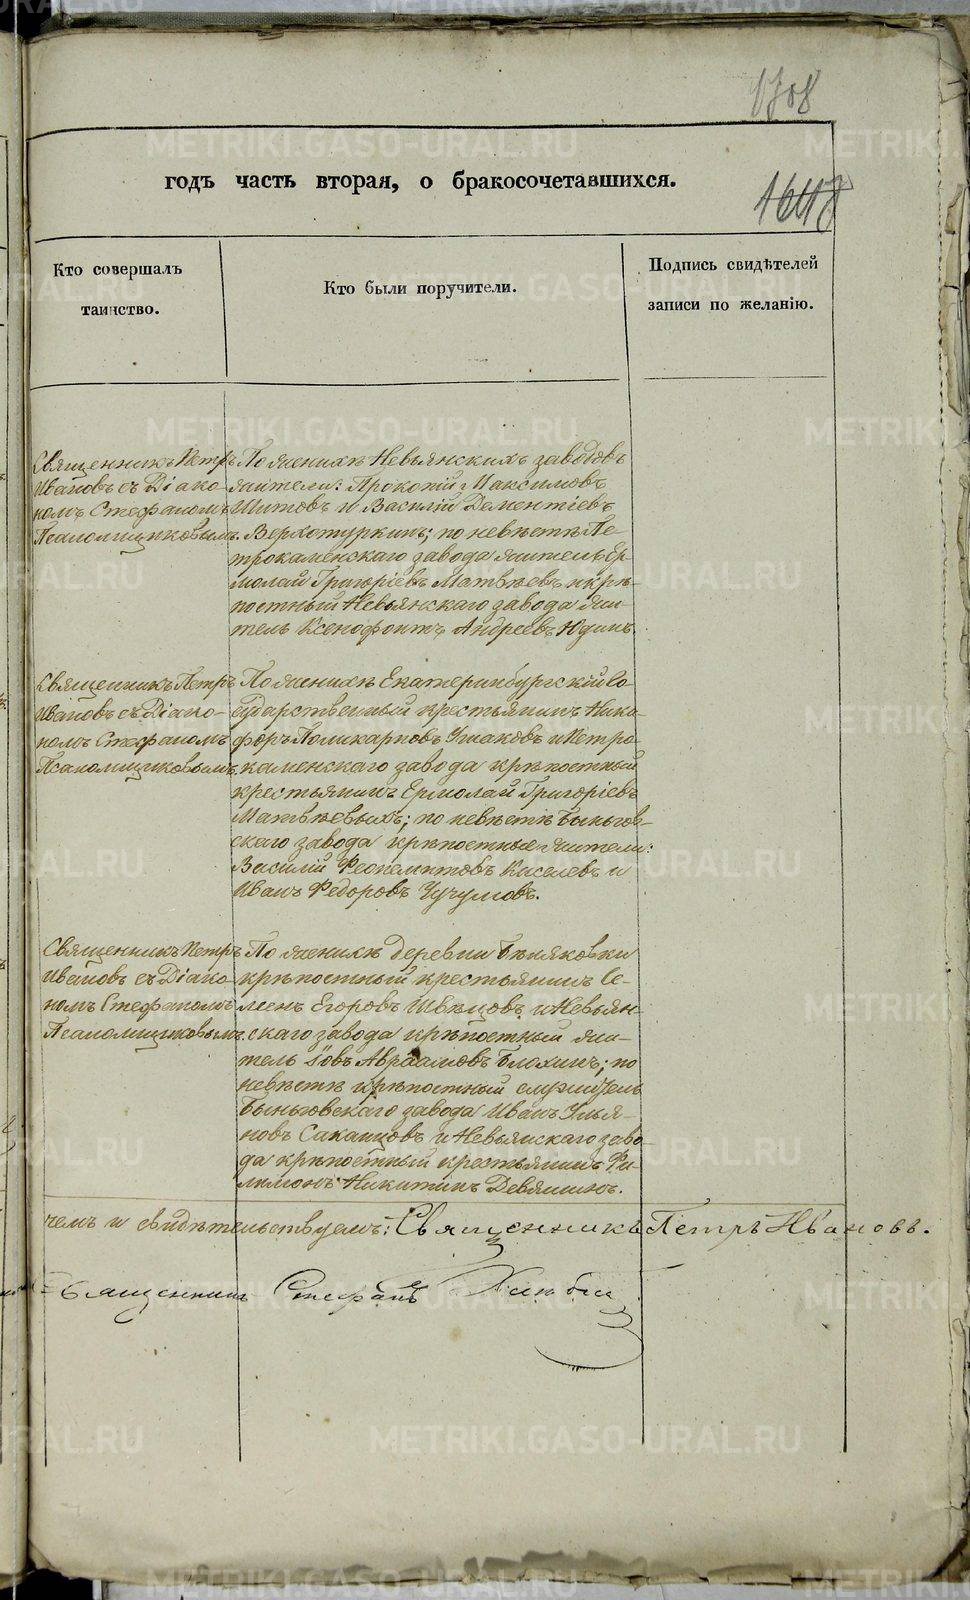 1708
годъ часть вторая, о бракосочетавшихся.
1648
Кто совершалъ
таинство.
Кто были поручители.
Подпись свидѣтелей
записи по желанію.
Священникъ Петръ
Ивановъ съ Діако-
номъ Стефаномъ
Псаломщиковымъ.
По женихѣ Невьянскихъ заводовъ
жители: Прокопій Максимовъ
Шитовъ и Василій Дементіевъ
Верхотуркинъ; по невѣстѣ Пе-
трокаменскаго завода житель Ер-
молай Григоріевъ Матвѣевъ и крѣ-
постный Невьянскаго завода жи-
тель Ксенофонтъ Андреевъ Юдинъ.
Священникъ Петръ
Ивановъ съ Діако-
номъ Стефаномъ
Псаломщиковымъ.
По женихѣ Екатеринбургскій Го-
сударственный крестьянинъ Ники-
форъ Поликарповъ Ушаковъ и Петро-
каменскаго завода крѣпостный
крестьянинъ Ермолай Григоріевъ
Матвѣевыхъ; по невѣстѣ Быньгов-
скаго завода крѣпостные жители:
Василій Феопемптовъ Киселевъ и
Иванъ Федоровъ Чучумовъ.
Священникъ Петръ
Ивановъ съ Діако-
номъ Стефаномъ
Псаломщиковымъ.
По женихѣ деревни Бѣляковки
крѣпостный крестьянинъ Се-
менъ Егоровъ Швецовъ и Невьян-
скаго завода крѣпостный жи-
тель Іовъ Авраамовъ Блохинъ; по
невѣстѣ крѣпостный служитель
Быньговскаго завода Иванъ Улья-
новъ Саканцовъ и Невьянскаго заво-
да крѣпостный крестьянинъ Фи-
лимонъ Никитинъ Девяшинъ.
чемъ и свидѣтельствуемъ: Священникъ Петръ Ивановъ.
Священникъ Стефанъ
METRIKI.GASO-URAL.RU